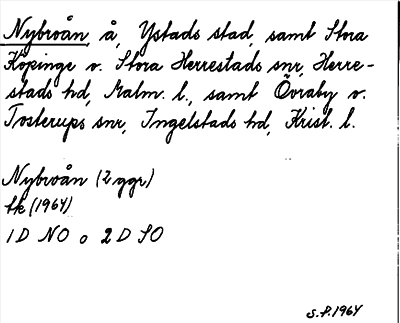 Nybroån, å, Ystads stad, samt Stora
Köpinge o. Stora Herrestads snr, Herre-
stads hd, Malm. l., samt Övraby o.
Tosterups snr, Ingelstads hd, Krist. l.
Nybroån (2 ggr)
tk (1964)
1D NO o 2D SO
S.P. 1964